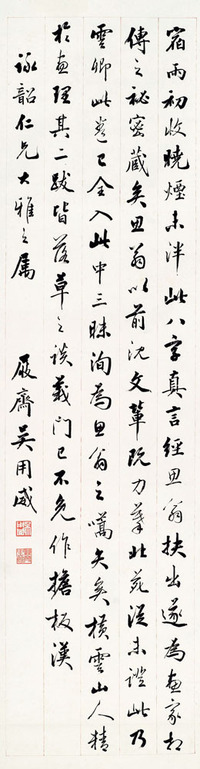 宿雨初收曉煙未泮此八字真言經思翁扶出遂為畫家相
傳之祕密藏矣思翁以前沈文輩既力摹北苑從未證此乃
雲卿此卷已全入此中三昧洵為思翁之嚆矢矣橫雲山人精
於畫理其二跋皆落草之談義門已不免作擔板漢
詠韶仁兄大雅之屬 屐齋吳用威